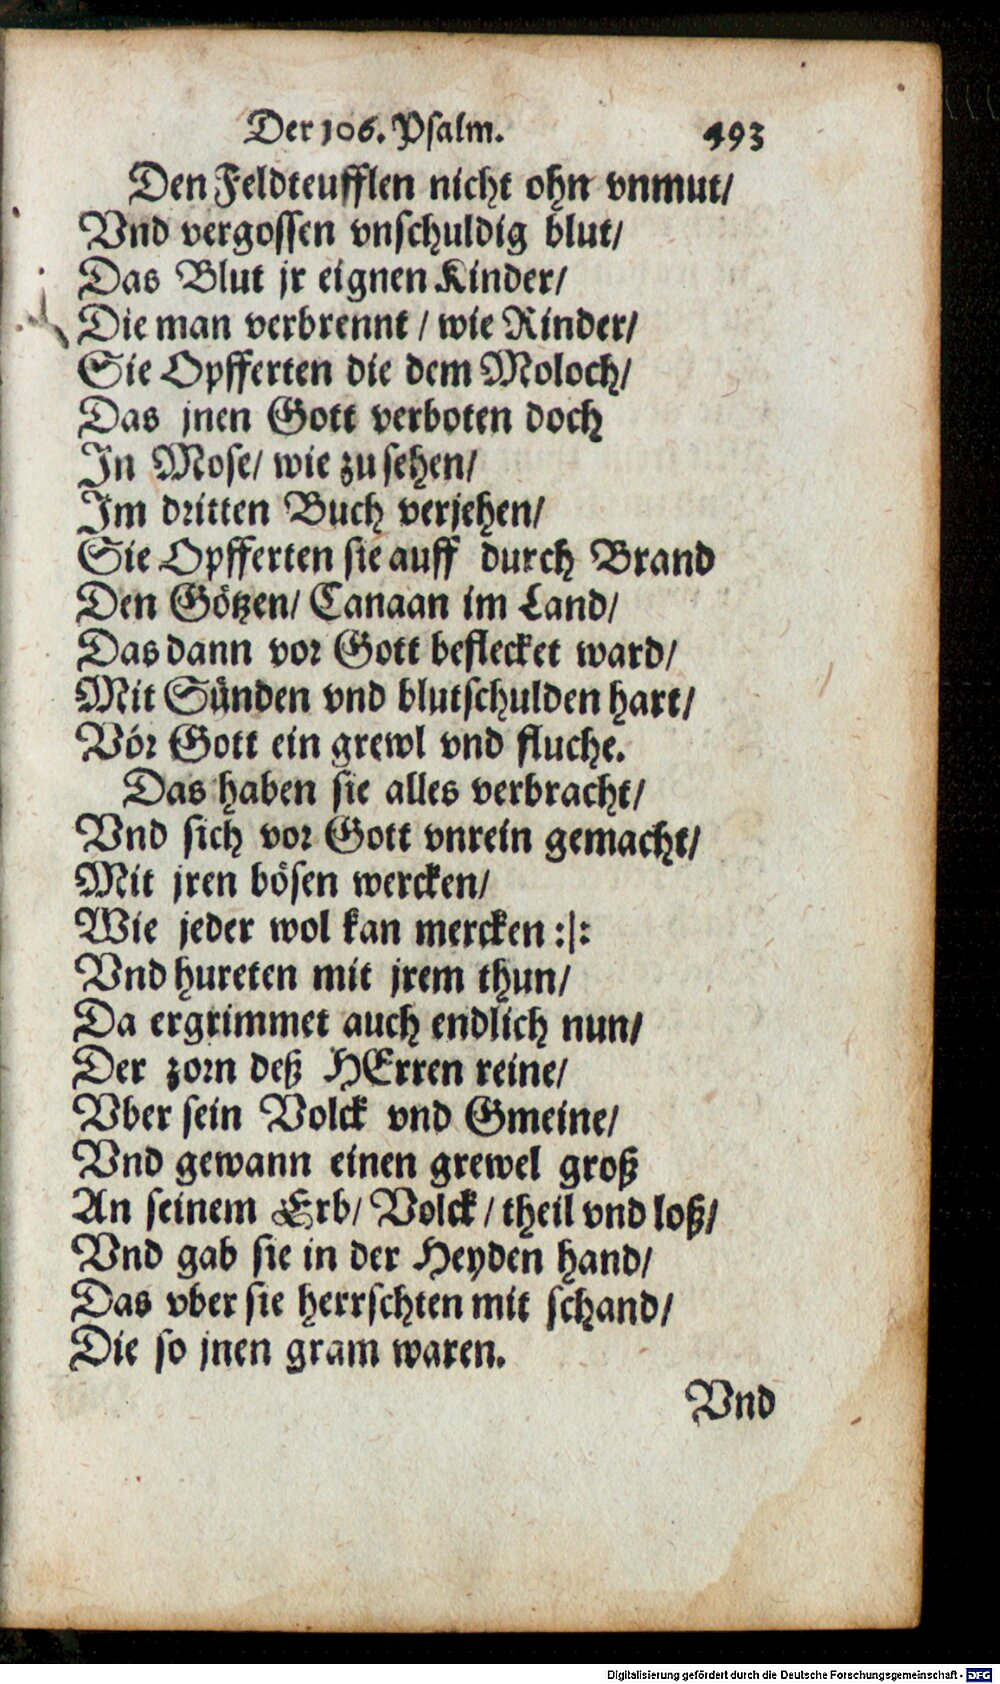 Der 106. Psalm. 493
Den Feldteufflen nicht ohn vnmut/
Vnd vergossen vnschuldig blut/
Das Blut jr eignen Kinder/
Die man verbrennt / wie Rinder/
Sie Opfferten die dem Moloch/
Das jnen Gott verboten doch
In Mose/ wie zu sehen/
Im dritten Buch verjehen/
Sie Opfferten sie auff durch Brand
Den Götzen/ Canaan im Land/
Das dann vor Gott beflecket ward/
Mit Sünden vnd blutschulden hart/
Vor Gott ein grewl vnd fluche.
Das haben sie alles verbracht/
Vnd sich vor Gott vnrein gemacht/
Mit jren bösen wercken/
Wie jeder wol kan mercken :|:
Vnd hureten mit jrem thun/
Da ergrimmet auch endlich nun/
Der zorn deß HErren reine/
Vber sein Volck vnd Gmeine/
Vnd gewann einen grewel groß
An seinem Erb/ Volck / theil vnd loß/
Vnd gab sie in der Heyden hand/
Das vber sie herrschten mit schand/
Die so jnen gram waren.
Vnd
Digitalisierung gefördert durch die Deutsche Forschungsgemeinschaft - DFG